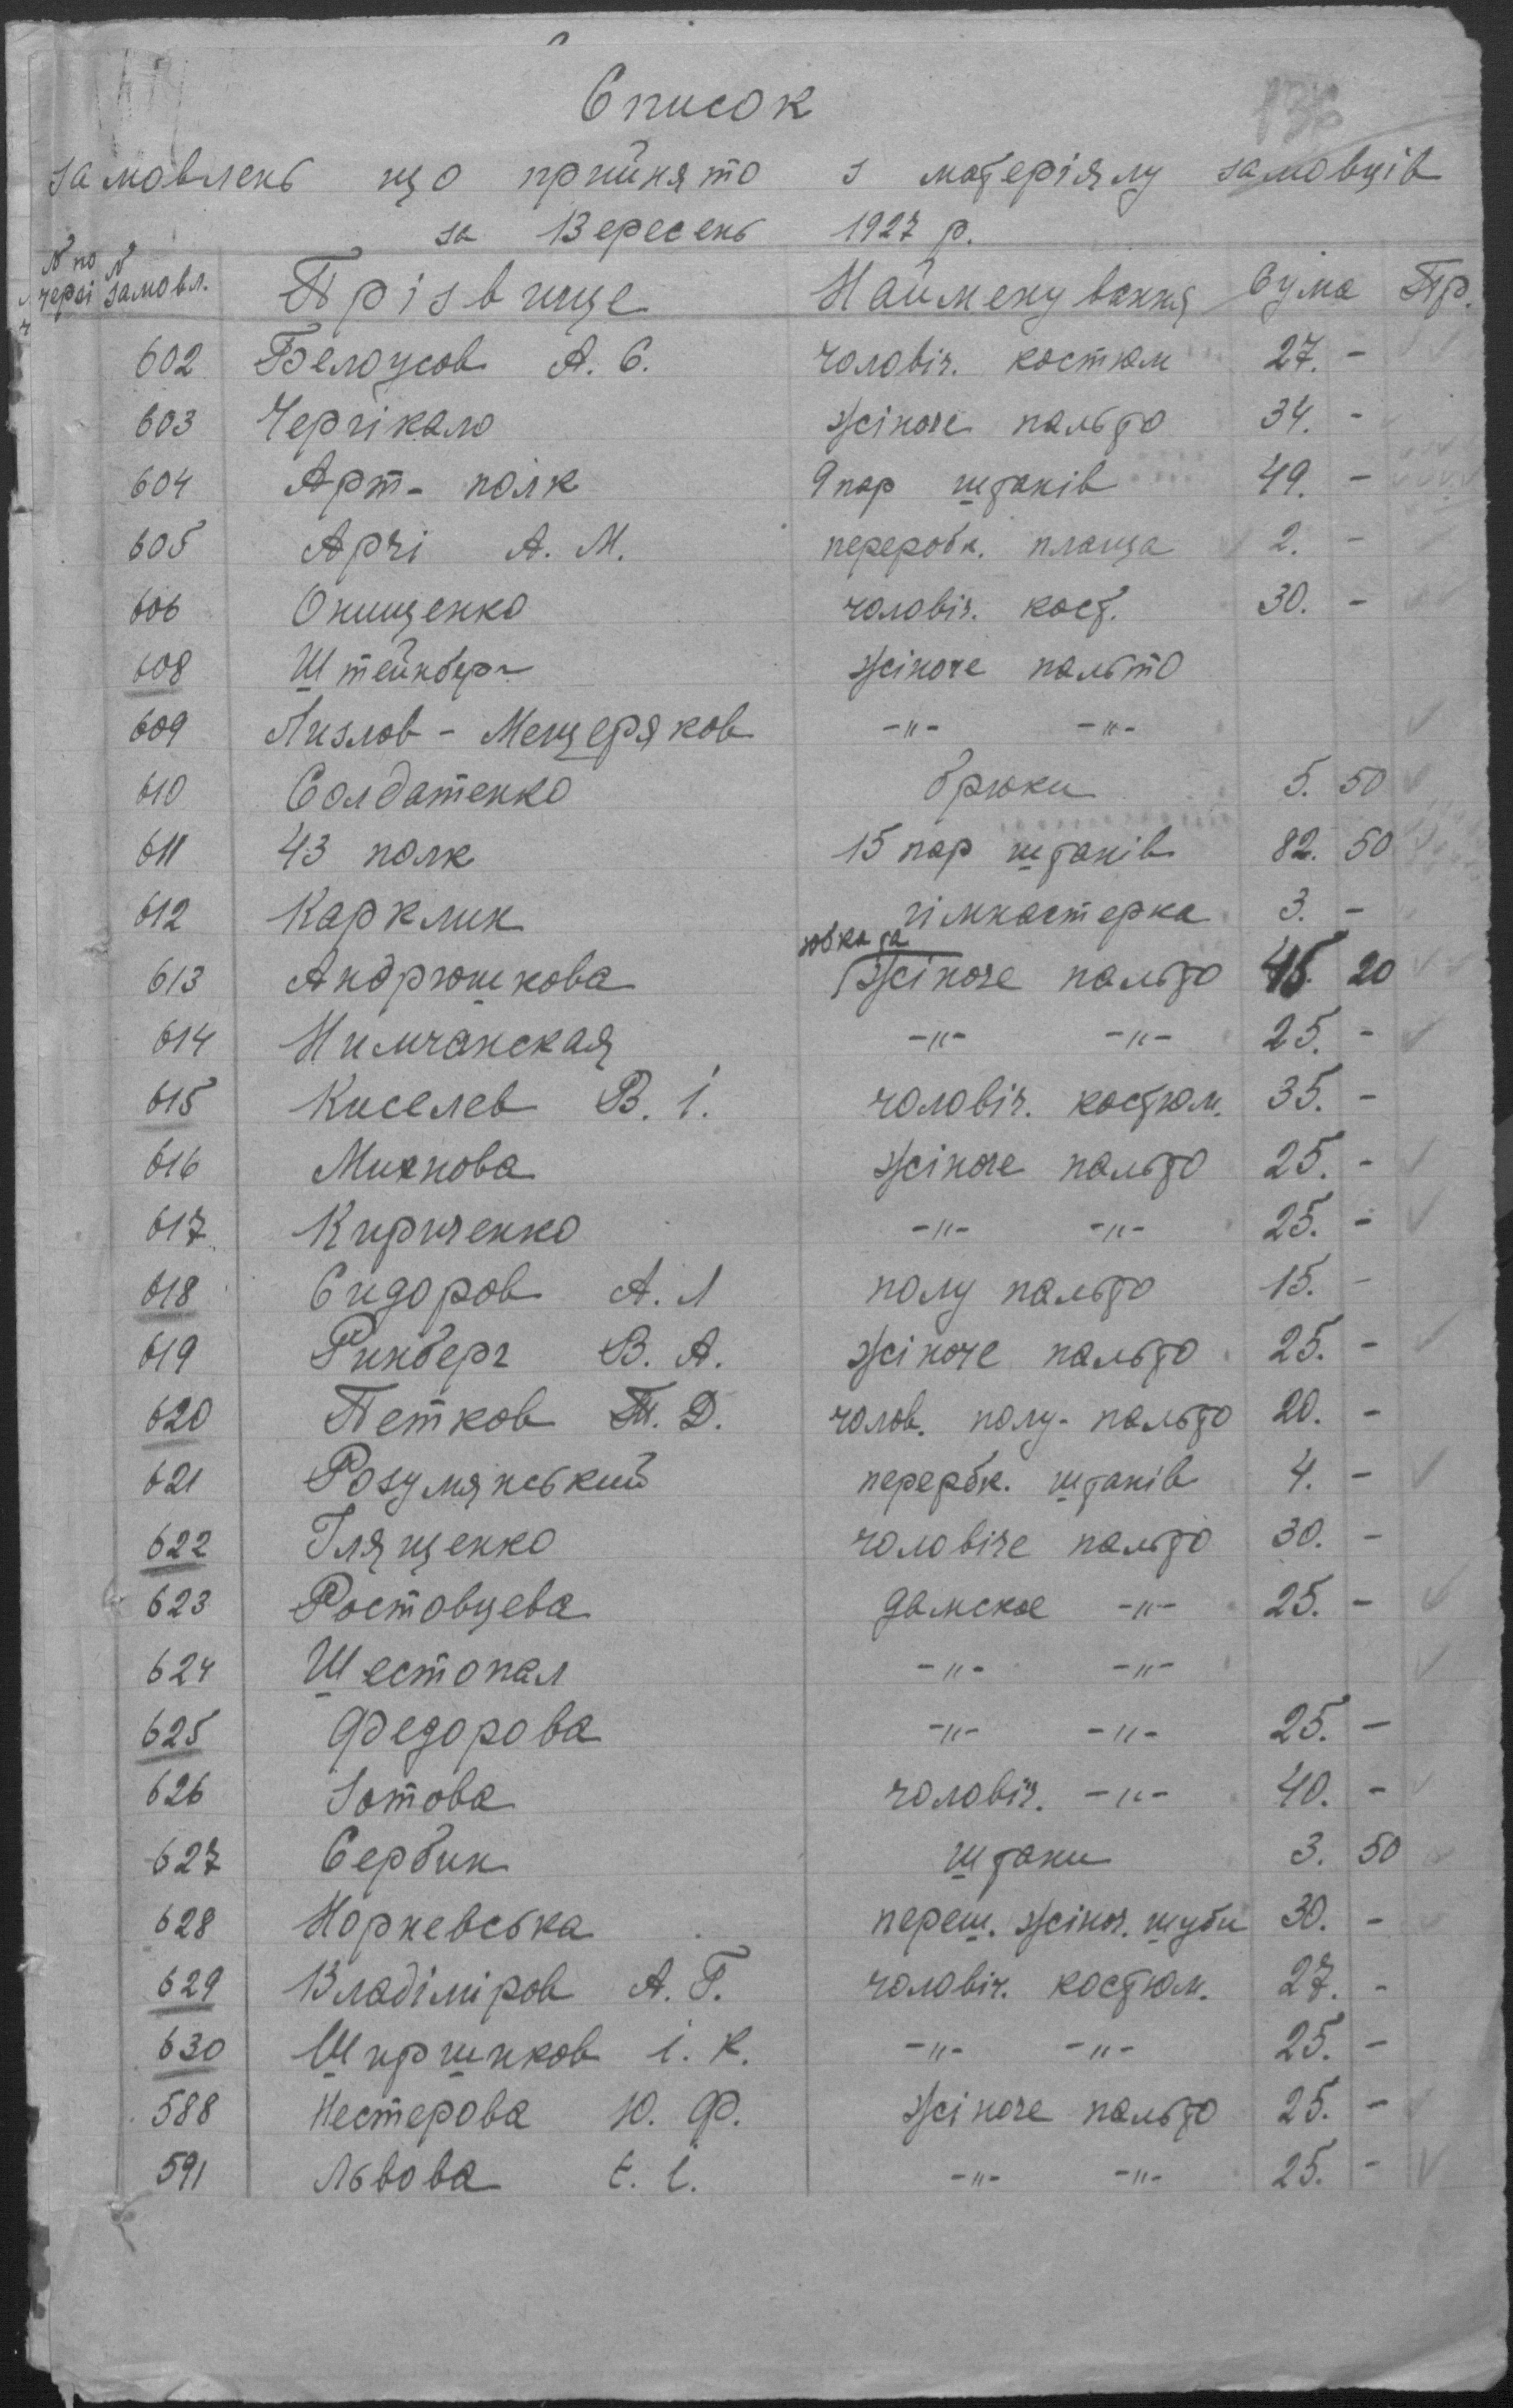 136
Список
замовлень що прийнято з матеріялу замовців
за Вересень 1927 р.
№ по черзі № замовл. Прізвище Найменування Сума Пр.
602 Белоусов А. С. чоловіч. костюм 27. -
603 Чергікало жіноче пальто 34. -
604 Арт- полк 9 пар штанів 49. -
605 Арчі А. М. переробк. плаща 2. -
606 Онищенко чоловіч. кост. 30. -
608 Штейнберг жіноче пальто
609 Лизлов - Мещеряков -"- -"-
610 Солдатенко брюки 5. 50
611 43 полк 15 пар штанів 82. 50
612 Карклин гімнастерка 3. -
613 Андрюшкова юбка та жіноче пальто 45. 20
614 Нимчанская -"- -"- 25. -
615 Киселев В. І. чоловіч. костюм. 35. -
616 Миянова жіноче пальто 25. -
617 Кириченко -"- -"- 25. -
618 Сидоров А. Л полу пальто 15. -
619 Ринберг В. А. жіноче пальто 25. -
620 Петков Т. Д. чолов. полу- пальто 20. -
621 Розумянський перербк. штанів 4. -
622 Глященко чоловіче пальто 30. -
623 Ростовцева дамское -"- 25. -
624 Шестопал -"- -"-
625 Федорова -"- -"- 25. -
626 Зотова чоловіч. -"- 40. -
627 Сербин штани 3. 50
628 Норневська переш. жіноч. шуби 30. -
629 Владіміров А. Г. чоловіч. костюм. 27. -
630 Ширшиков І. К. -"- -"- 25. -
588 Нестерова Ю. Ф. жіноче пальто 25. -
591 Львова Є. І. -"- -"- 25. -